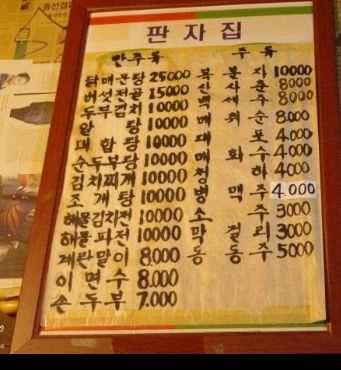 판자집
안주류 주류
닭매운탕 25000 복분자 10000
버섯전골 15000 산사춘 8000
두부김치 10000 백세주 8000
알탕 10000 매취순 8000
대합탕 10000 대포 4.000
순두부탕 10000 매화수 4000
김치찌개 10000 청하 4000
조개탕 10000 병맥주 4.000
해물김치전 10000 소주 3000
해물파전 10000 막걸리 3000
계란말이 8.000 동동주 5000
이면수 8.000
손두부 7.000